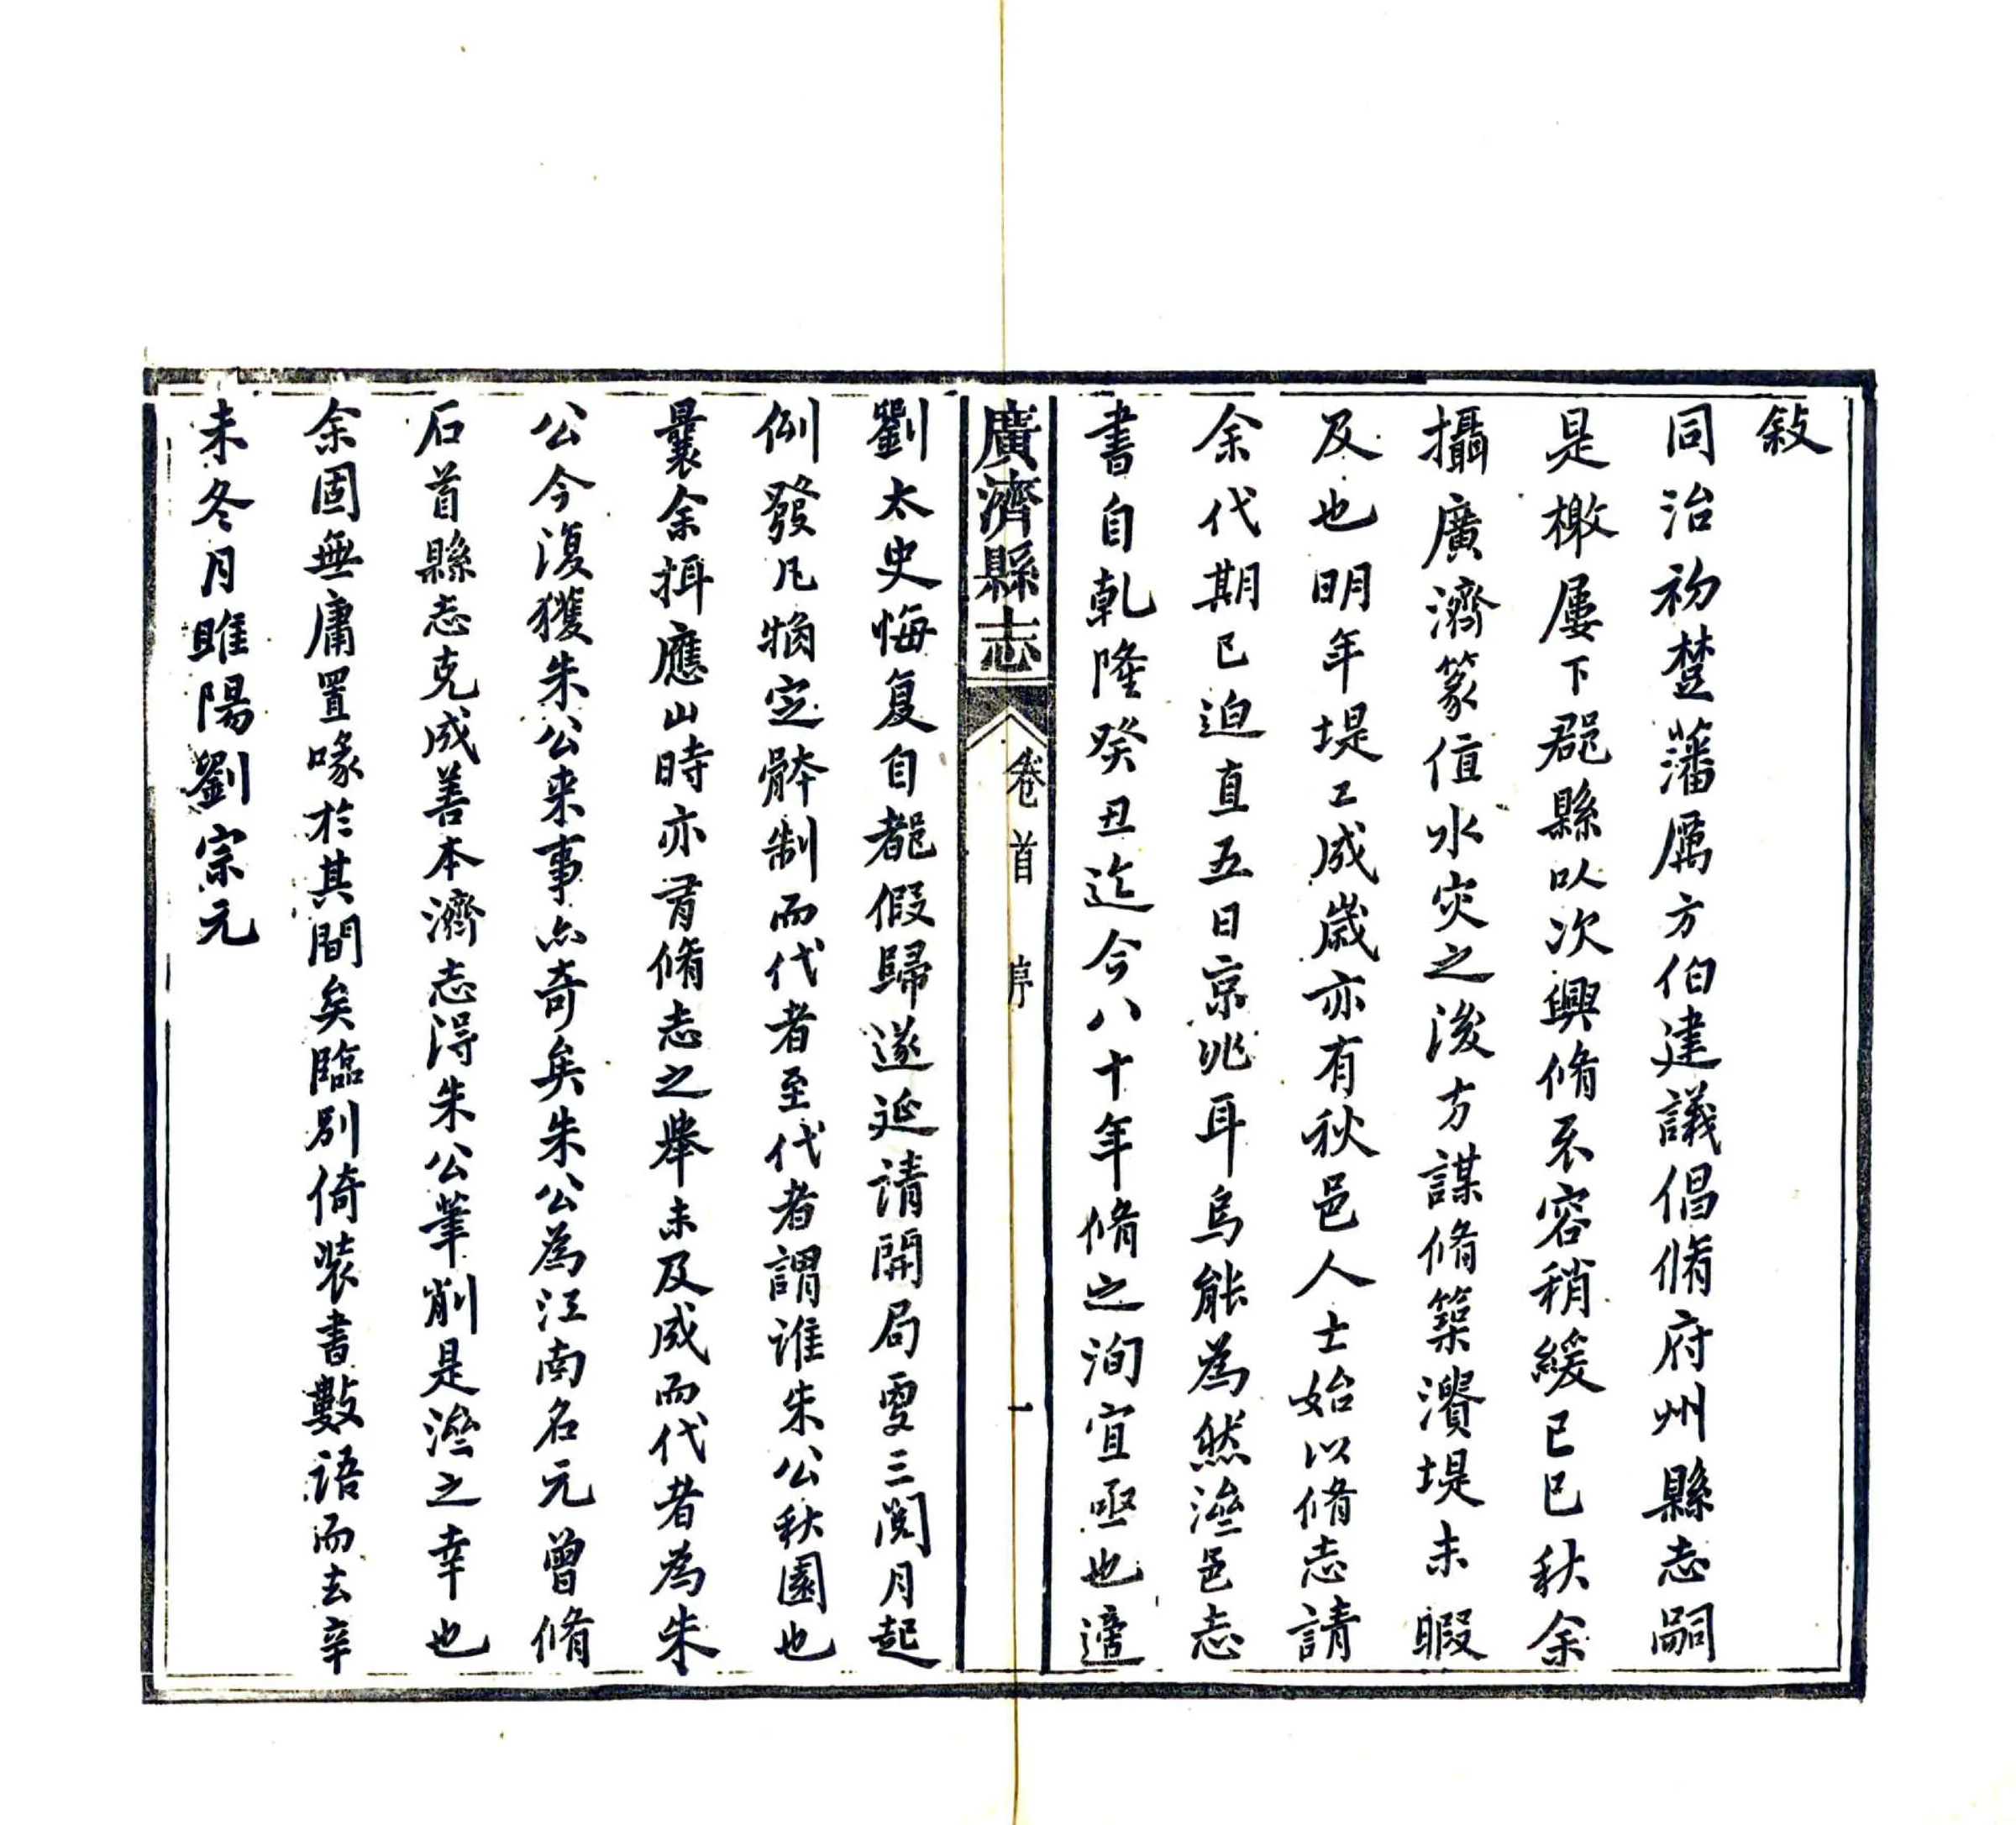 敍
同治初楚藩厲方伯建議倡脩府州縣志嗣
是檄屢下郡縣以次興脩不容稍緩己巳秋余
攝廣濟篆值水灾之後方謀脩築瀆堤未暇
及也明年堤工成歲亦有秋邑人士始以脩志請
余代期已迫直五日京兆耳烏能為然濟邑志
書自乾隆癸丑迄今八十年脩之洵宜亟也適
廣濟縣志
卷首
序
一
劉太史悔复自都假歸遂延請開局更三閱月起
例發凡粗定體制而代者至代者謂誰朱公秋園也
曩余攝應山時亦有脩志之舉未及成而代者為朱
公今復獲朱公來事亦奇矣朱公為江南名元曾脩
石首縣志克成善本濟志得朱公筆削是濟之幸也
余固無庸置喙於其間矣臨別倚装書數語而去辛
未冬月睢陽劉宗元